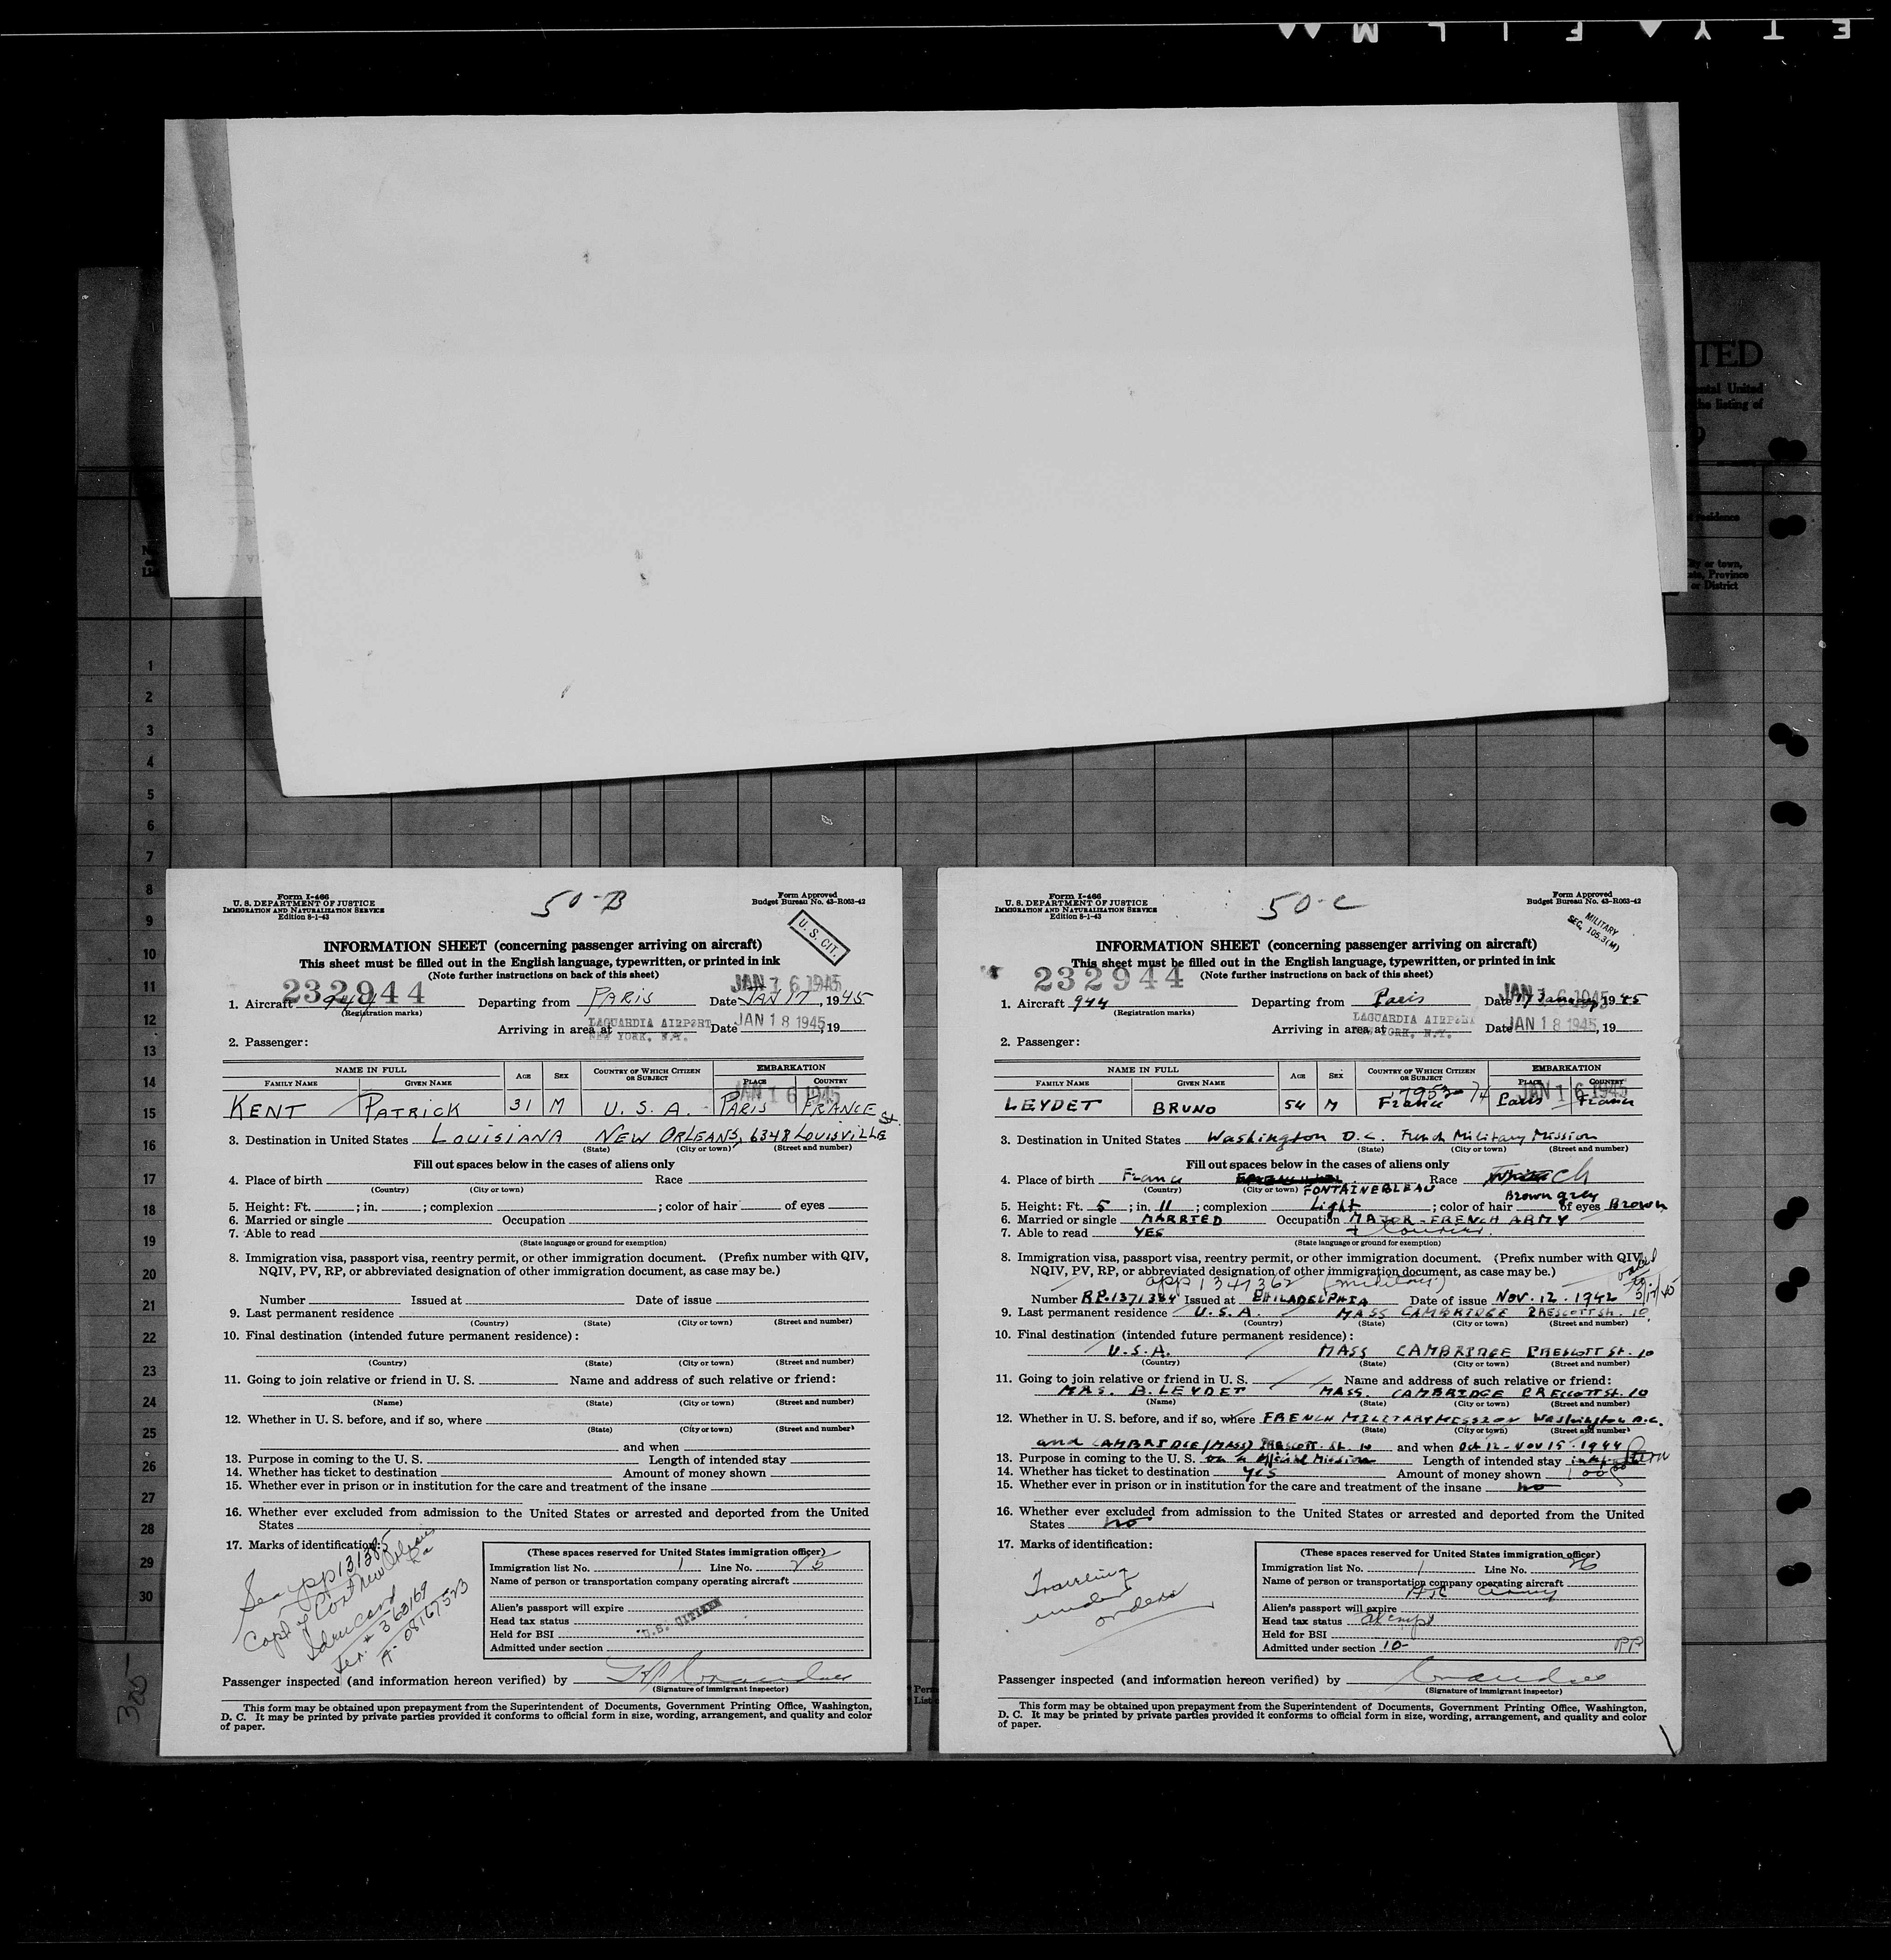 ETY FILM
TED
ental United
the listing of
9
residence
ity or town,
ate, Province
or District
1
2
3
4
5
6
7
8
9
10
11
12
13
14
15
16
17
18
19
20
21
22
23
24
25
26
27
28
29
30
305
Form I-466
U. S. DEPARTMENT OF JUSTICE
IMMIGRATION AND NATURALIZATION SERVICE
Edition 8-1-43
50-B
Form Approved
Budget Bureau No. 43-R063-42
U. S. CIT.
INFORMATION SHEET (concerning passenger arriving on aircraft)
This sheet must be filled out in the English language, typewritten, or printed in ink
(Note further instructions on back of this sheet)
232944
JAN 16 1945
1. Aircraft 944 Departing from PARIS Date JAN 17, 1945
(Registration marks)
Arriving in area at LAGUARDIA AIRPORT NEW YORK, N.Y. Date JAN 18 1945, 19
2. Passenger:
NAME IN FULL AGE SEX COUNTRY OF WHICH CITIZEN OR SUBJECT EMBARKATION
FAMILY NAME GIVEN NAME PLACE COUNTRY
JAN 16 1945
KENT PATRICK 31 M U. S. A. PARIS FRANCE
3. Destination in United States LOUISIANA NEW ORLEANS, 6348 LOUISVILLE St.
(State) (City or town) (Street and number)
Fill out spaces below in the cases of aliens only
4. Place of birth Race
(Country) (City or town)
5. Height: Ft. ; in. ; complexion ; color of hair of eyes
6. Married or single Occupation
7. Able to read
(State language or ground for exemption)
8. Immigration visa, passport visa, reentry permit, or other immigration document. (Prefix number with QIV,
NQIV, PV, RP, or abbreviated designation of other immigration document, as case may be.)
Number Issued at Date of issue
9. Last permanent residence
(Country) (State) (City or town) (Street and number)
10. Final destination (intended future permanent residence):
(Country) (State) (City or town) (Street and number)
11. Going to join relative or friend in U. S. Name and address of such relative or friend:
(Name) (State) (City or town) (Street and number)
12. Whether in U. S. before, and if so, where
(State) (City or town) (Street and number)
and when
13. Purpose in coming to the U. S. Length of intended stay
14. Whether has ticket to destination Amount of money shown
15. Whether ever in prison or in institution for the care and treatment of the insane
16. Whether ever excluded from admission to the United States or arrested and deported from the United
States
17. Marks of identification:
Sea pp 131385
Capt of Port New Orleans La
Iden card
Ser. # 363169
A- 08167523
(These spaces reserved for United States immigration officer)
Immigration list No. 1 Line No. 25
Name of person or transportation company operating aircraft
Alien's passport will expire
Head tax status
U.S. CITIZEN
Held for BSI
Admitted under section
Passenger inspected (and information hereon verified) by
(Signature of immigrant inspector)
This form may be obtained upon prepayment from the Superintendent of Documents, Government Printing Office, Washington,
D. C. It may be printed by private parties provided it conforms to official form in size, wording, arrangement, and quality and color
of paper.
Form I-466
U. S. DEPARTMENT OF JUSTICE
IMMIGRATION AND NATURALIZATION SERVICE
Edition 8-1-43
50-C
Form Approved
Budget Bureau No. 43-R063-42
MILITARY
SEC. 105.3(M)
INFORMATION SHEET (concerning passenger arriving on aircraft)
This sheet must be filled out in the English language, typewritten, or printed in ink
(Note further instructions on back of this sheet)
232944
JAN 16 1945
1. Aircraft 944 Departing from Paris Date 17 January, 1945
(Registration marks)
Arriving in area at LAGUARDIA AIRPORT NEW YORK, N.Y. Date JAN 18 1945, 19
2. Passenger:
NAME IN FULL AGE SEX COUNTRY OF WHICH CITIZEN OR SUBJECT EMBARKATION
FAMILY NAME GIVEN NAME PLACE COUNTRY
JAN 16 1945
LEYDET BRUNO 54 M France Paris France
3. Destination in United States Washington D.C. French Military Mission
(State) (City or town) (Street and number)
Fill out spaces below in the cases of aliens only
4. Place of birth France FONTAINEBLEAU Race
(Country) (City or town)
5. Height: Ft. 5 ; in. 11 ; complexion Light ; color of hair Brown grey of eyes Brown
6. Married or single MARRIED Occupation MAJOR - FRENCH ARMY
7. Able to read YES
(State language or ground for exemption)
8. Immigration visa, passport visa, reentry permit, or other immigration document. (Prefix number with QIV,
NQIV, PV, RP, or abbreviated designation of other immigration document, as case may be.)
app 1341362 (military)
Number RP.1371384 Issued at PHILADELPHIA Date of issue NOV. 12. 1942
9. Last permanent residence U.S.A. MASS CAMBRIDGE PRESCOTT St. 10
(Country) (State) (City or town) (Street and number)
10. Final destination (intended future permanent residence):
U.S.A. MASS CAMBRIDGE PRESCOTT St. 10
(Country) (State) (City or town) (Street and number)
11. Going to join relative or friend in U. S. Name and address of such relative or friend:
MRS. B. LEYDET MASS. CAMBRIDGE PRESCOTT St. 10
(Name) (State) (City or town) (Street and number)
12. Whether in U. S. before, and if so, where FRENCH MILITARY MISSION Washington D.C.
(State) (City or town) (Street and number)
and CAMBRIDGE (MASS) PRESCOTT. St. 10 and when Oct 12 - NOV 15. 1944
13. Purpose in coming to the U. S. on a official Mission Length of intended stay
14. Whether has ticket to destination YES Amount of money shown 100.00
15. Whether ever in prison or in institution for the care and treatment of the insane no
16. Whether ever excluded from admission to the United States or arrested and deported from the United
States no
17. Marks of identification:
Traveling
under
orders
(These spaces reserved for United States immigration officer)
Immigration list No. 1 Line No. 26
Name of person or transportation company operating aircraft
Army
Alien's passport will expire
Head tax status exempt
Held for BSI
Admitted under section 10- RP
Passenger inspected (and information hereon verified) by
(Signature of immigrant inspector)
This form may be obtained upon prepayment from the Superintendent of Documents, Government Printing Office, Washington,
D. C. It may be printed by private parties provided it conforms to official form in size, wording, arrangement, and quality and color
of paper.